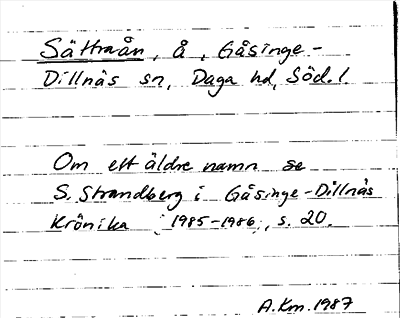 Sättraån, å, Gåsinge-
Dillnäs sn, Daga hd, Söd. l.
Om ett äldre namn se
S. Strandberg i Gåsinge-Dillnäs
Krönika 1985-1986, s. 20.
A.Km. 1987